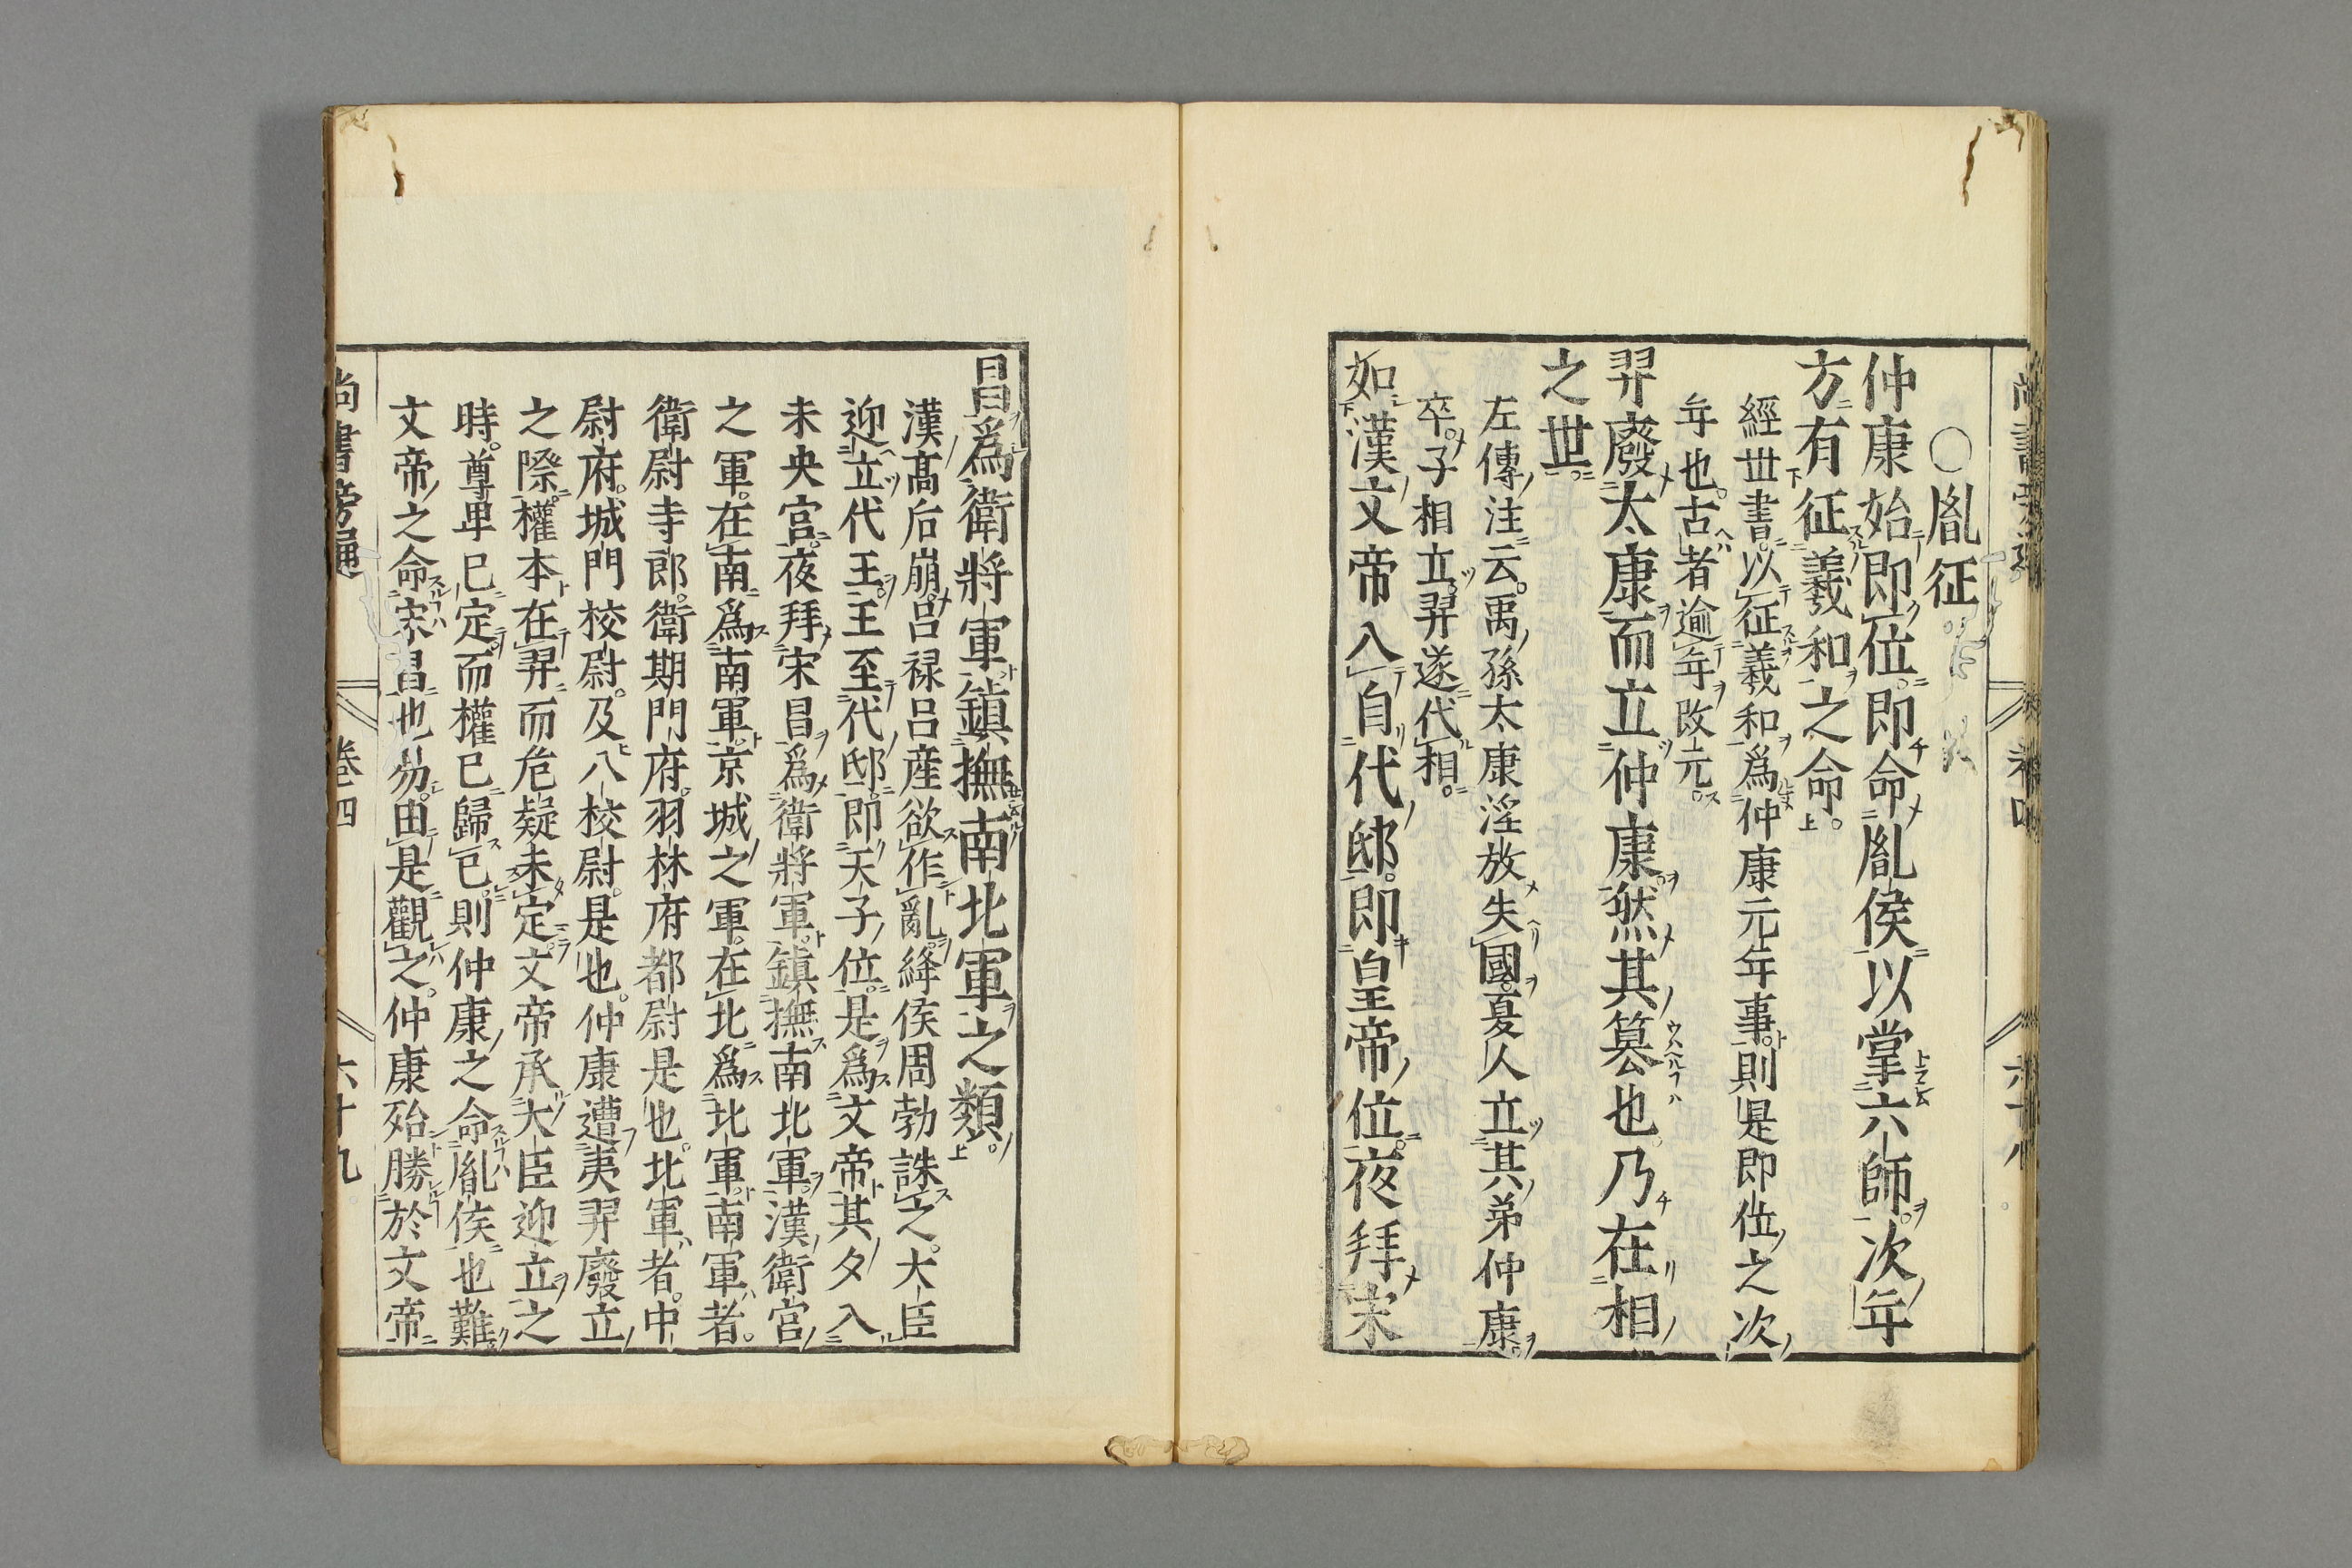 ○胤征
仲康始即位。即命胤侯以掌六師。次年
方有征羲和之命。
經丗書。以征羲和爲仲康元年事。則是即位之次
年也。古者逾年改元。
羿廢太康而立仲康。然其簒也。乃在相
之世。
左傳注云。禹孫太康淫放失國。夏人立其弟仲康。
卒。子相立。羿遂代相。
如漢文帝入自代邸。即皇帝位。夜拜宋
昌爲衛將軍鎮撫南北軍之類。
漢髙后崩。呂禄呂産欲作亂。絳侯周勃誅之。大臣
迎立代王。王至代邸。即天子位。是爲文帝其夕入
未央宫。夜拜宋昌爲衛將軍。鎮撫南北軍。漢衛宫
之軍。在南爲南軍。京城之軍。在北爲北軍。南軍者。
衛尉寺郎。衛期門府。羽林府都尉是也。北軍者。中
尉府。城門校尉。及八校尉。是也。仲康遭夷羿廢立
之際。權本在羿而危疑未定。文帝承大臣迎立之
時。尊卑已定而權已歸已。則仲康之命胤侯也難。
文帝之命宋昌也易。由是觀之。仲康殆勝於文帝
尚書旁通
卷四
六十九